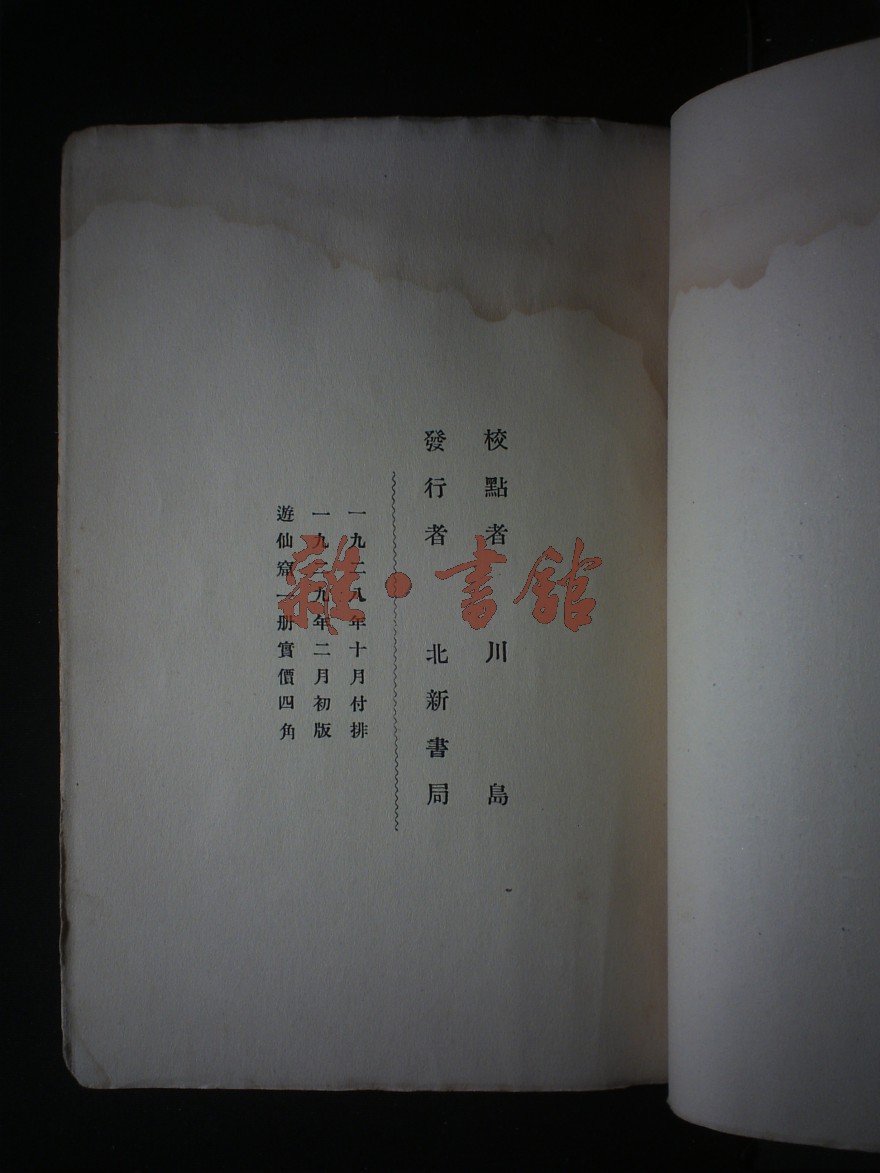 校點者 川島
發行者 北新書局
一九二八年十月付排
一九二九年二月初版
遊仙窟一册實價四角
雜·書館